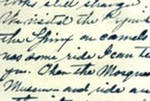 still strange
We visited the Pyramids
the Sphinx on camels
was some ride I can tell
you. Then the Mosques
Museum and side are